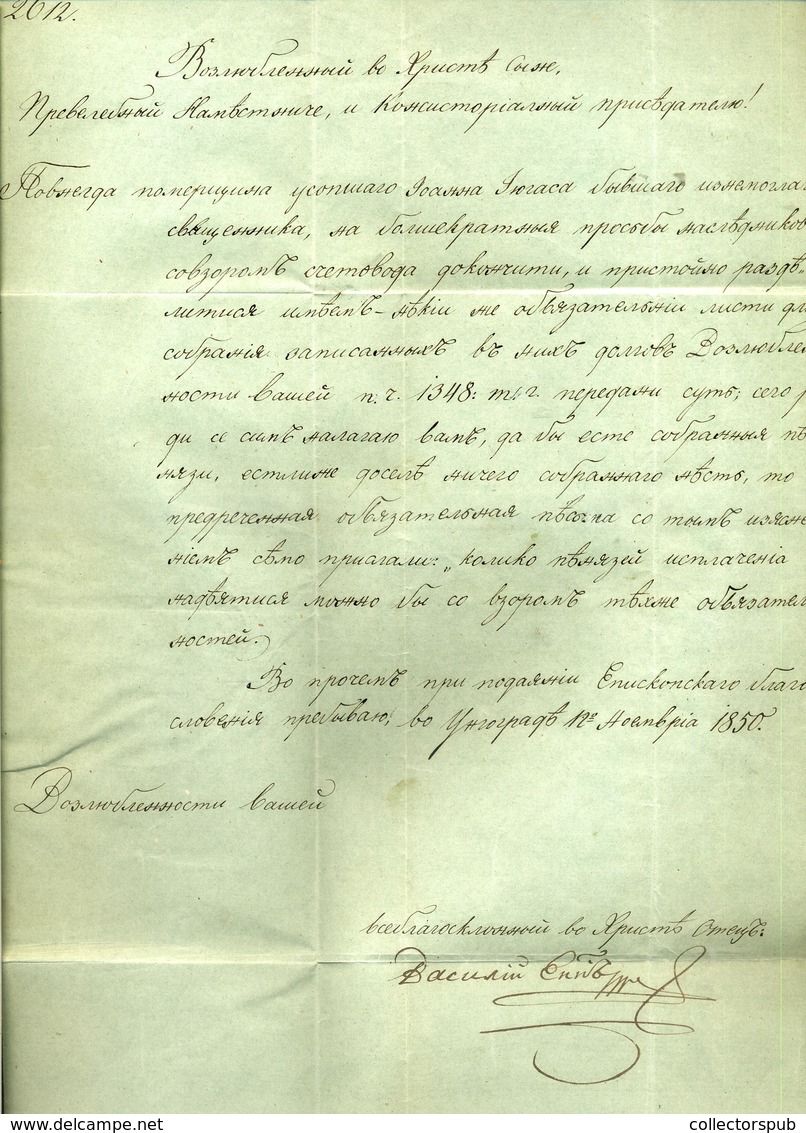 2612.
Возлюбленный во Христѣ Сыне,
Превелебный Намѣстниче, и Консисторіальный присѣдателю!
Повнегда померщина усопшаго Іоанна Югаса бывшаго изнемоглаг
священника, на болшекратныя просьбы наслѣдников
совзоромъ счетовода докончити, и пристойно раздѣ„
литися имѣетъ – нѣкіи же обязательніи листи дл
собранія записанныхъ въ нихъ долговъ Возлюблен
ности Вашей п: ч. 1348: т: г. передани суть; сего р
ди се симъ налагаю вамъ, да бы есте собранныя пѣ
нязи, естлиже доселѣ ничего собраннаго нѣсть, то
предреченная обвязательная со тымъ изясне
ніемъ сѣмо прислали: „колико пѣнязей исплаченія
надѣятися можно бы со взоромъ тѣхже обьязател
ностей.
Во прочемъ при подаяніи Епископскаго благо
словенія пребываю, во Унградѣ 12го Ноемврія 1850.
Возлюбленности вашей
всеблагосклонный во Христѣ Отецъ:
Василій Еппъ
collectorspub
delcampe.net